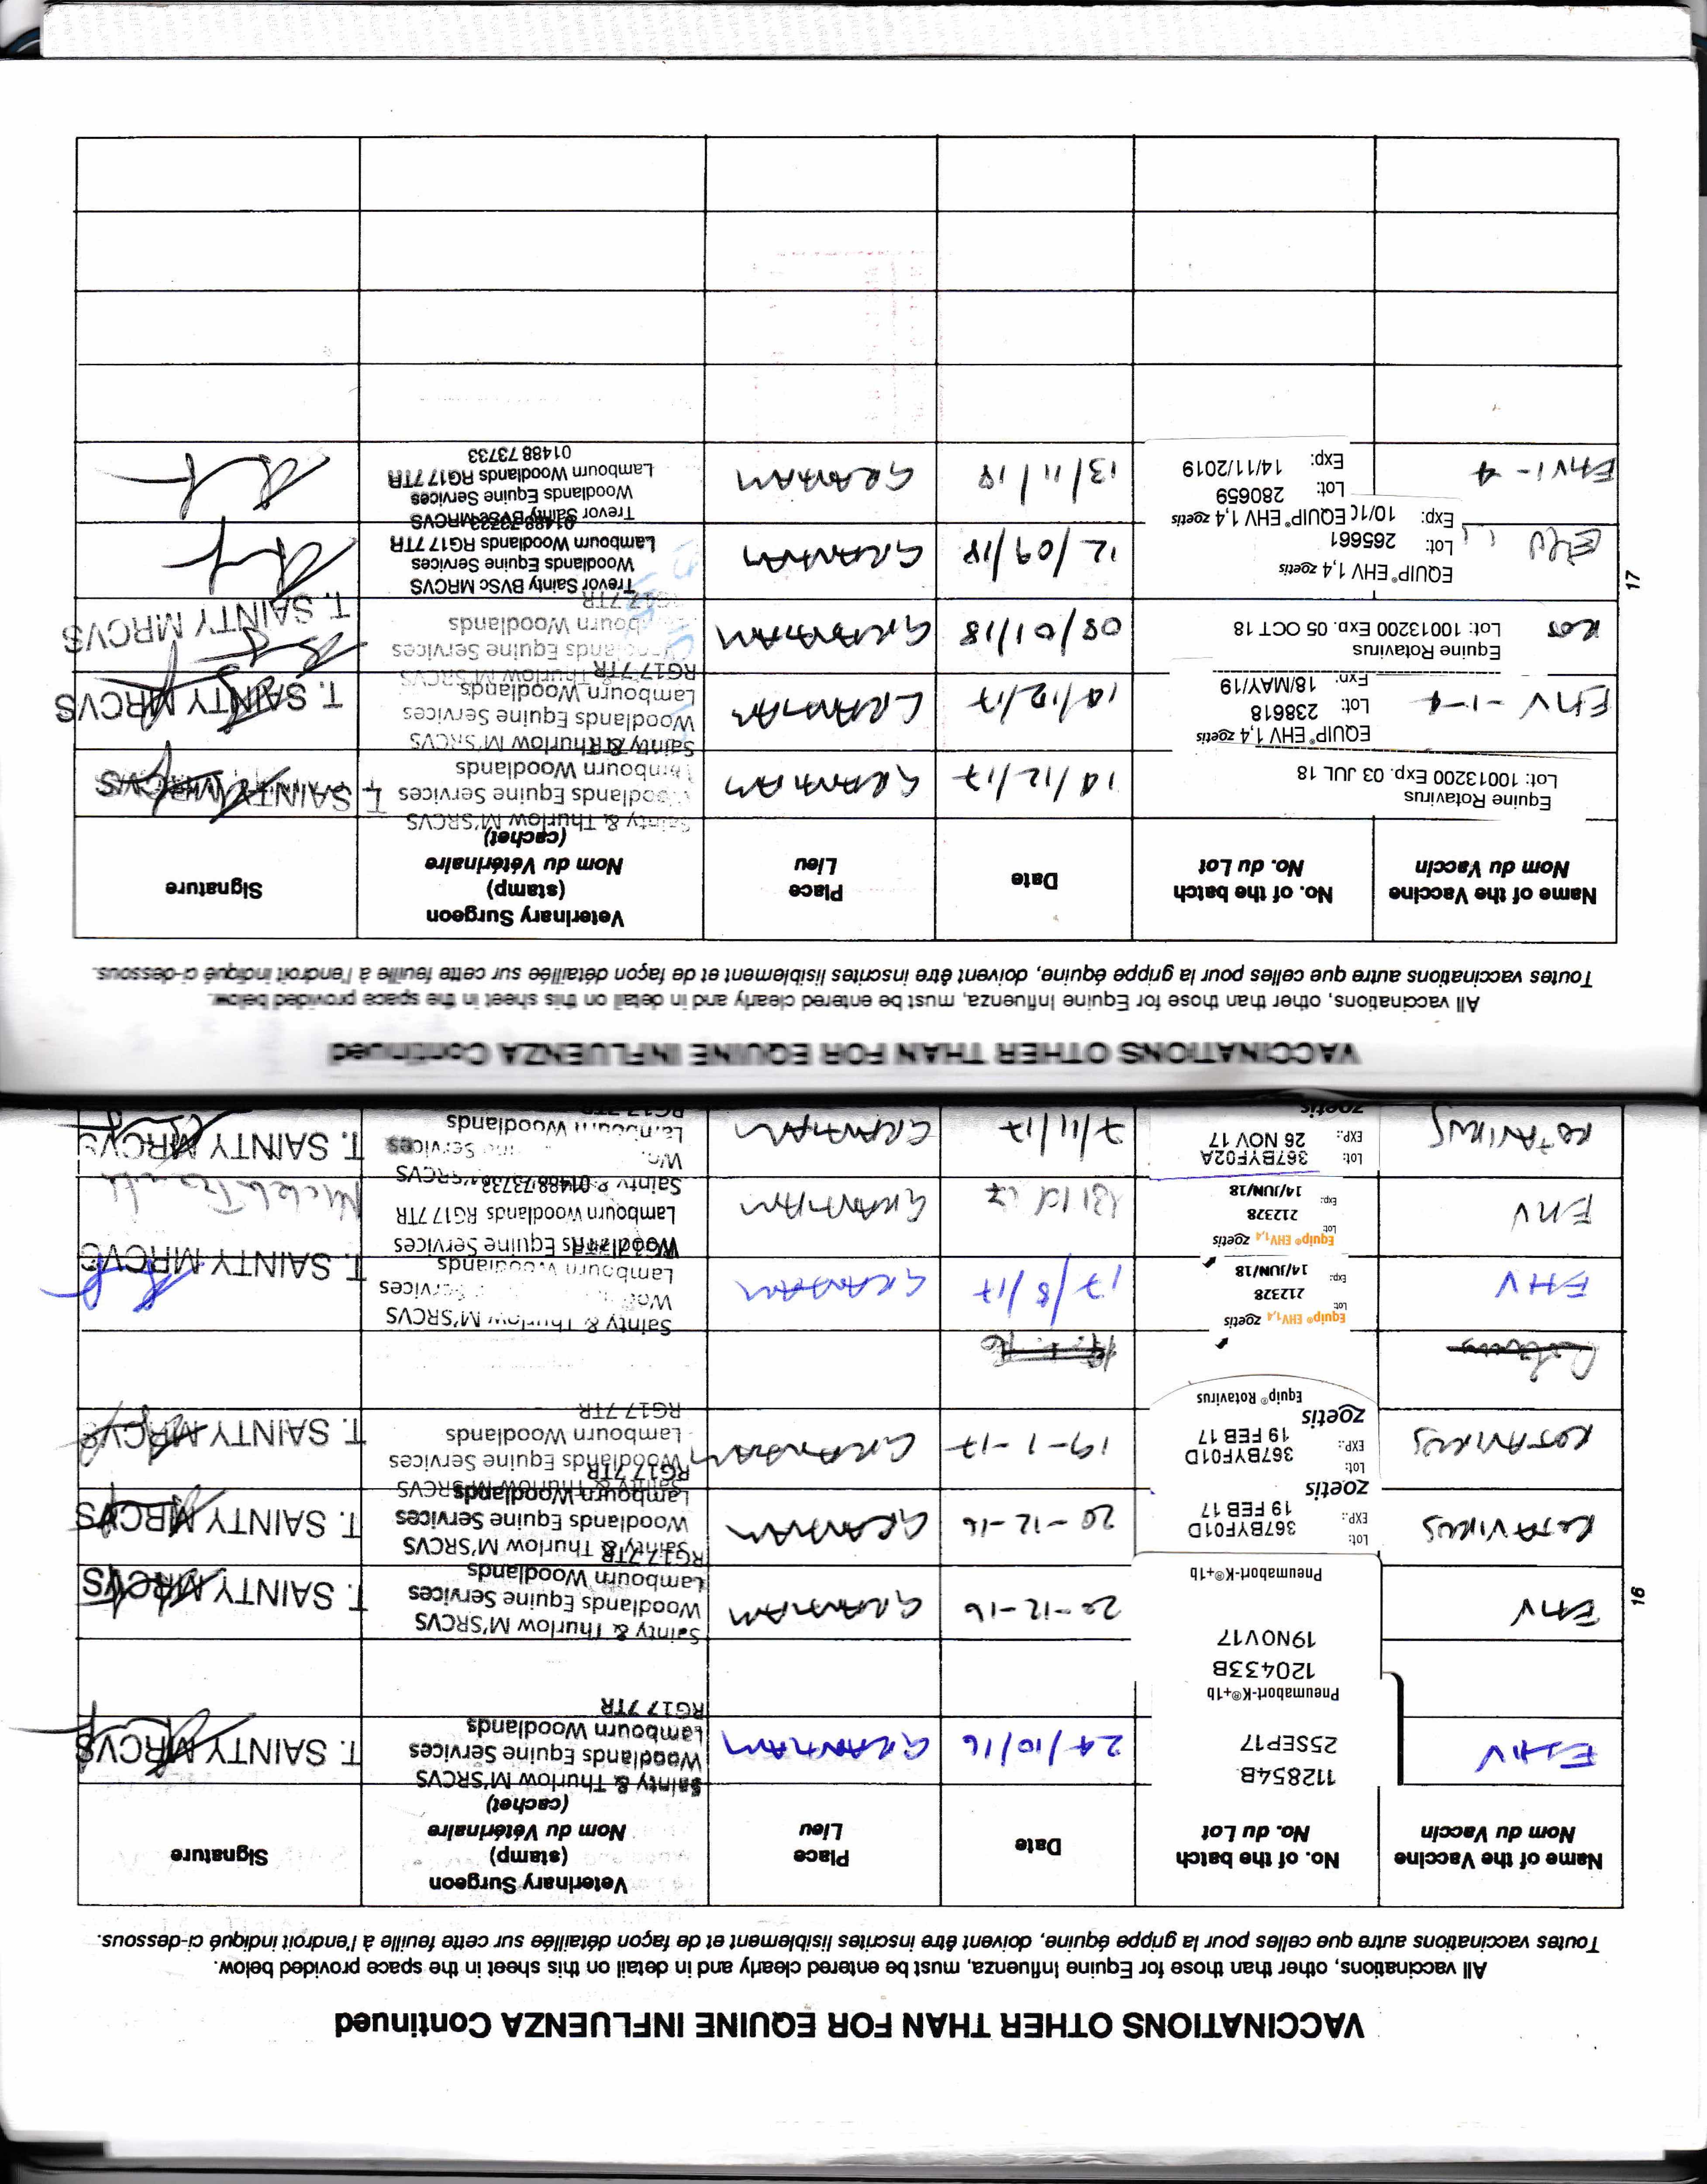 VACCINATIONS OTHER THAN FOR EQUINE INFLUENZA Continued
All vaccinations, other than those for Equine Influenza, must be entered clearly and in detail on this sheet in the space provided below.
Toutes vaccinations autre que celles pour la grippe équine, doivent être inscrites lisiblement et de façon détaillée sur cette feuille à l'endroit indiqué ci-dessous.
Name of the Vaccine
Nom du Vaccin
No. of the batch
No. du Lot
Date
Place
Lieu
Veterinary Surgeon
(stamp)
Nom du Vétérinaire
(cachet)
Signature
EHV
112854B
25SEP17
Pneumabort-K®+1b
24/10/16
GRANHAM
Sainty & Thurlow M'SRCVS
Woodlands Equine Services
Lambourn Woodlands
RG17 7TR
T. SAINTY MRCVS
120433B
19NOV17
Pneumabort-K®+1b
16
EHV
20-12-16
GRANHAM
Sainty & Thurlow M'SRCVS
Woodlands Equine Services
Lambourn Woodlands
RG17 7TR
T. SAINTY MRCVS
ROTAVIRUS
Lot: 367BYF01D
EXP.: 19 FEB 17
zoetis
20-12-16
GRANHAM
Sainty & Thurlow M'SRCVS
Woodlands Equine Services
Lambourn Woodlands
RG17 7TR
T. SAINTY MRCVS
ROTAVIRUS
Lot: 367BYF01D
EXP.: 19 FEB 17
zoetis
Equip® Rotavirus
19-1-17
GRANHAM
Sainty & Thurlow M'SRCVS
Woodlands Equine Services
Lambourn Woodlands
RG17 7TR
T. SAINTY MRCVS
EHV
Equip® EHV1,4 zoetis
Lot: 212328
Exp: 14/JUN/18
17/8/17
GRANHAM
Sainty & Thurlow M'SRCVS
Services
Lambourn Woodlands
T. SAINTY MRCVS
EHV
Equip® EHV1,4 zoetis
Lot: 212328
Exp: 14/JUN/18
GRANHAM
Woodlands Equine Services
Lambourn Woodlands RG17 7TR
01488 73733
ROTAVIRUS
Lot: 367BYF02A
EXP.: 26 NOV 17
zoetis
7/11/17
GRANHAM
Sainty
Services
Lambourn Woodlands
RG17 7TR
T. SAINTY MRCVS
VACCINATIONS OTHER THAN FOR EQUINE INFLUENZA Continued
All vaccinations, other than those for Equine Influenza, must be entered clearly and in detail on this sheet in the space provided below.
Toutes vaccinations autre que celles pour la grippe équine, doivent être inscrites lisiblement et de façon détaillée sur cette feuille à l'endroit indiqué ci-dessous.
Name of the Vaccine
Nom du Vaccin
No. of the batch
No. du Lot
Date
Place
Lieu
Veterinary Surgeon
(stamp)
Nom du Vétérinaire
(cachet)
Signature
Equine Rotavirus
Lot: 10013200 Exp. 03 JUL 18
14/12/17
GRANHAM
Sainty & Thurlow M'SRCVS
Woodlands Equine Services
Lambourn Woodlands
T. SAINTY MRCVS
EHV-1-4
EQUIP® EHV 1,4 zoetis
Lot: 238618
Exp: 18/MAY/19
14/12/17
GRANHAM
Sainty & Thurlow M'SRCVS
Woodlands Equine Services
Lambourn Woodlands
RG17 7TR
T. SAINTY MRCVS
Rot
Equine Rotavirus
Lot: 10013200 Exp. 05 OCT 18
08/01/18
GRANHAM
Thurlow M'SRCVS
Woodlands Equine Services
Lambourn Woodlands
RG17 7TR
T. SAINTY MRCVS
17
EQUIP® EHV 1,4 zoetis
Lot: 265661
Exp: 10/10
12/09/18
GRANHAM
Trevor Sainty BVSc MRCVS
Woodlands Equine Services
Lambourn Woodlands RG17 7TR
01488 73733
EHV1-4
EQUIP® EHV 1,4 zoetis
Lot: 280659
Exp: 14/11/2019
13/11/18
GRANHAM
Trevor Sainty BVSc MRCVS
Woodlands Equine Services
Lambourn Woodlands RG17 7TR
01488 73733